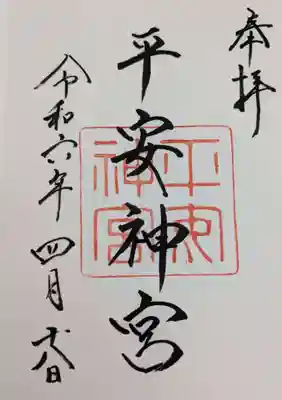 奉拝
平安神宮
令和六年四月十八日
平安
神宮